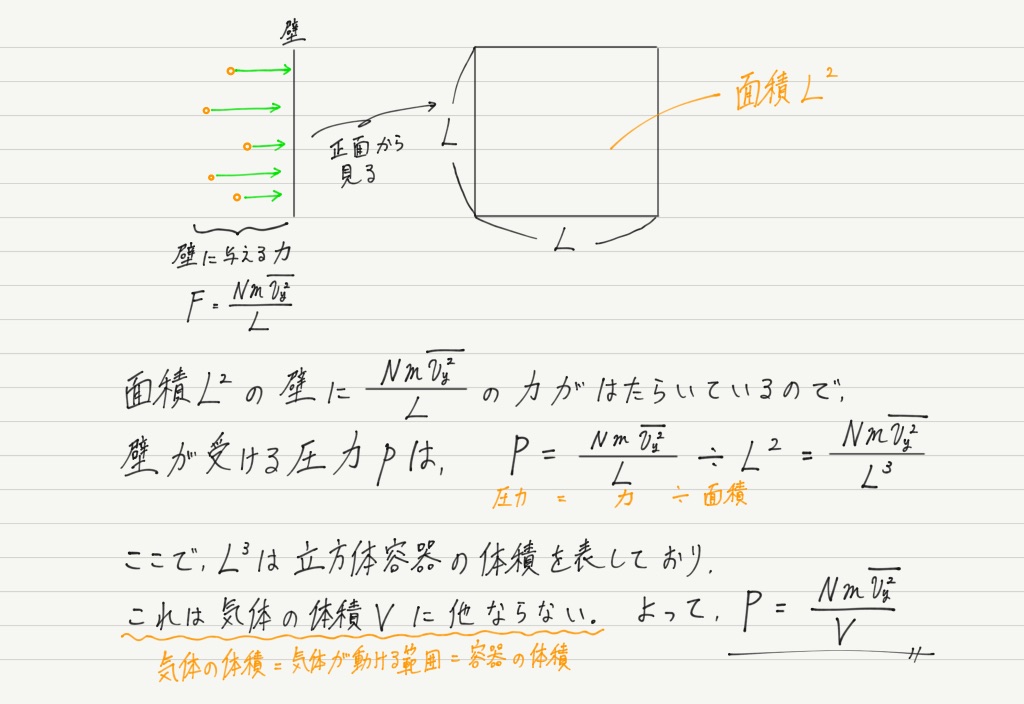 壁
正面から
見る
L
L
面積 L²
壁に与える力
F = Nm\overline{v_y^2} / L
面積 L² の 壁に Nm\overline{v_y^2} / L の 力が はたらいているので,
壁が受ける圧力 p は, P = Nm\overline{v_y^2} / L ÷ L² = Nm\overline{v_y^2} / L³
圧力 = 力 ÷ 面積
ここで, L³ は 立方体容器の体積を表しており,
これは 気体の体積 V に他ならない. よって, P = Nm\overline{v_y^2} / V
気体の体積 = 気体が動ける範囲 = 容器の体積